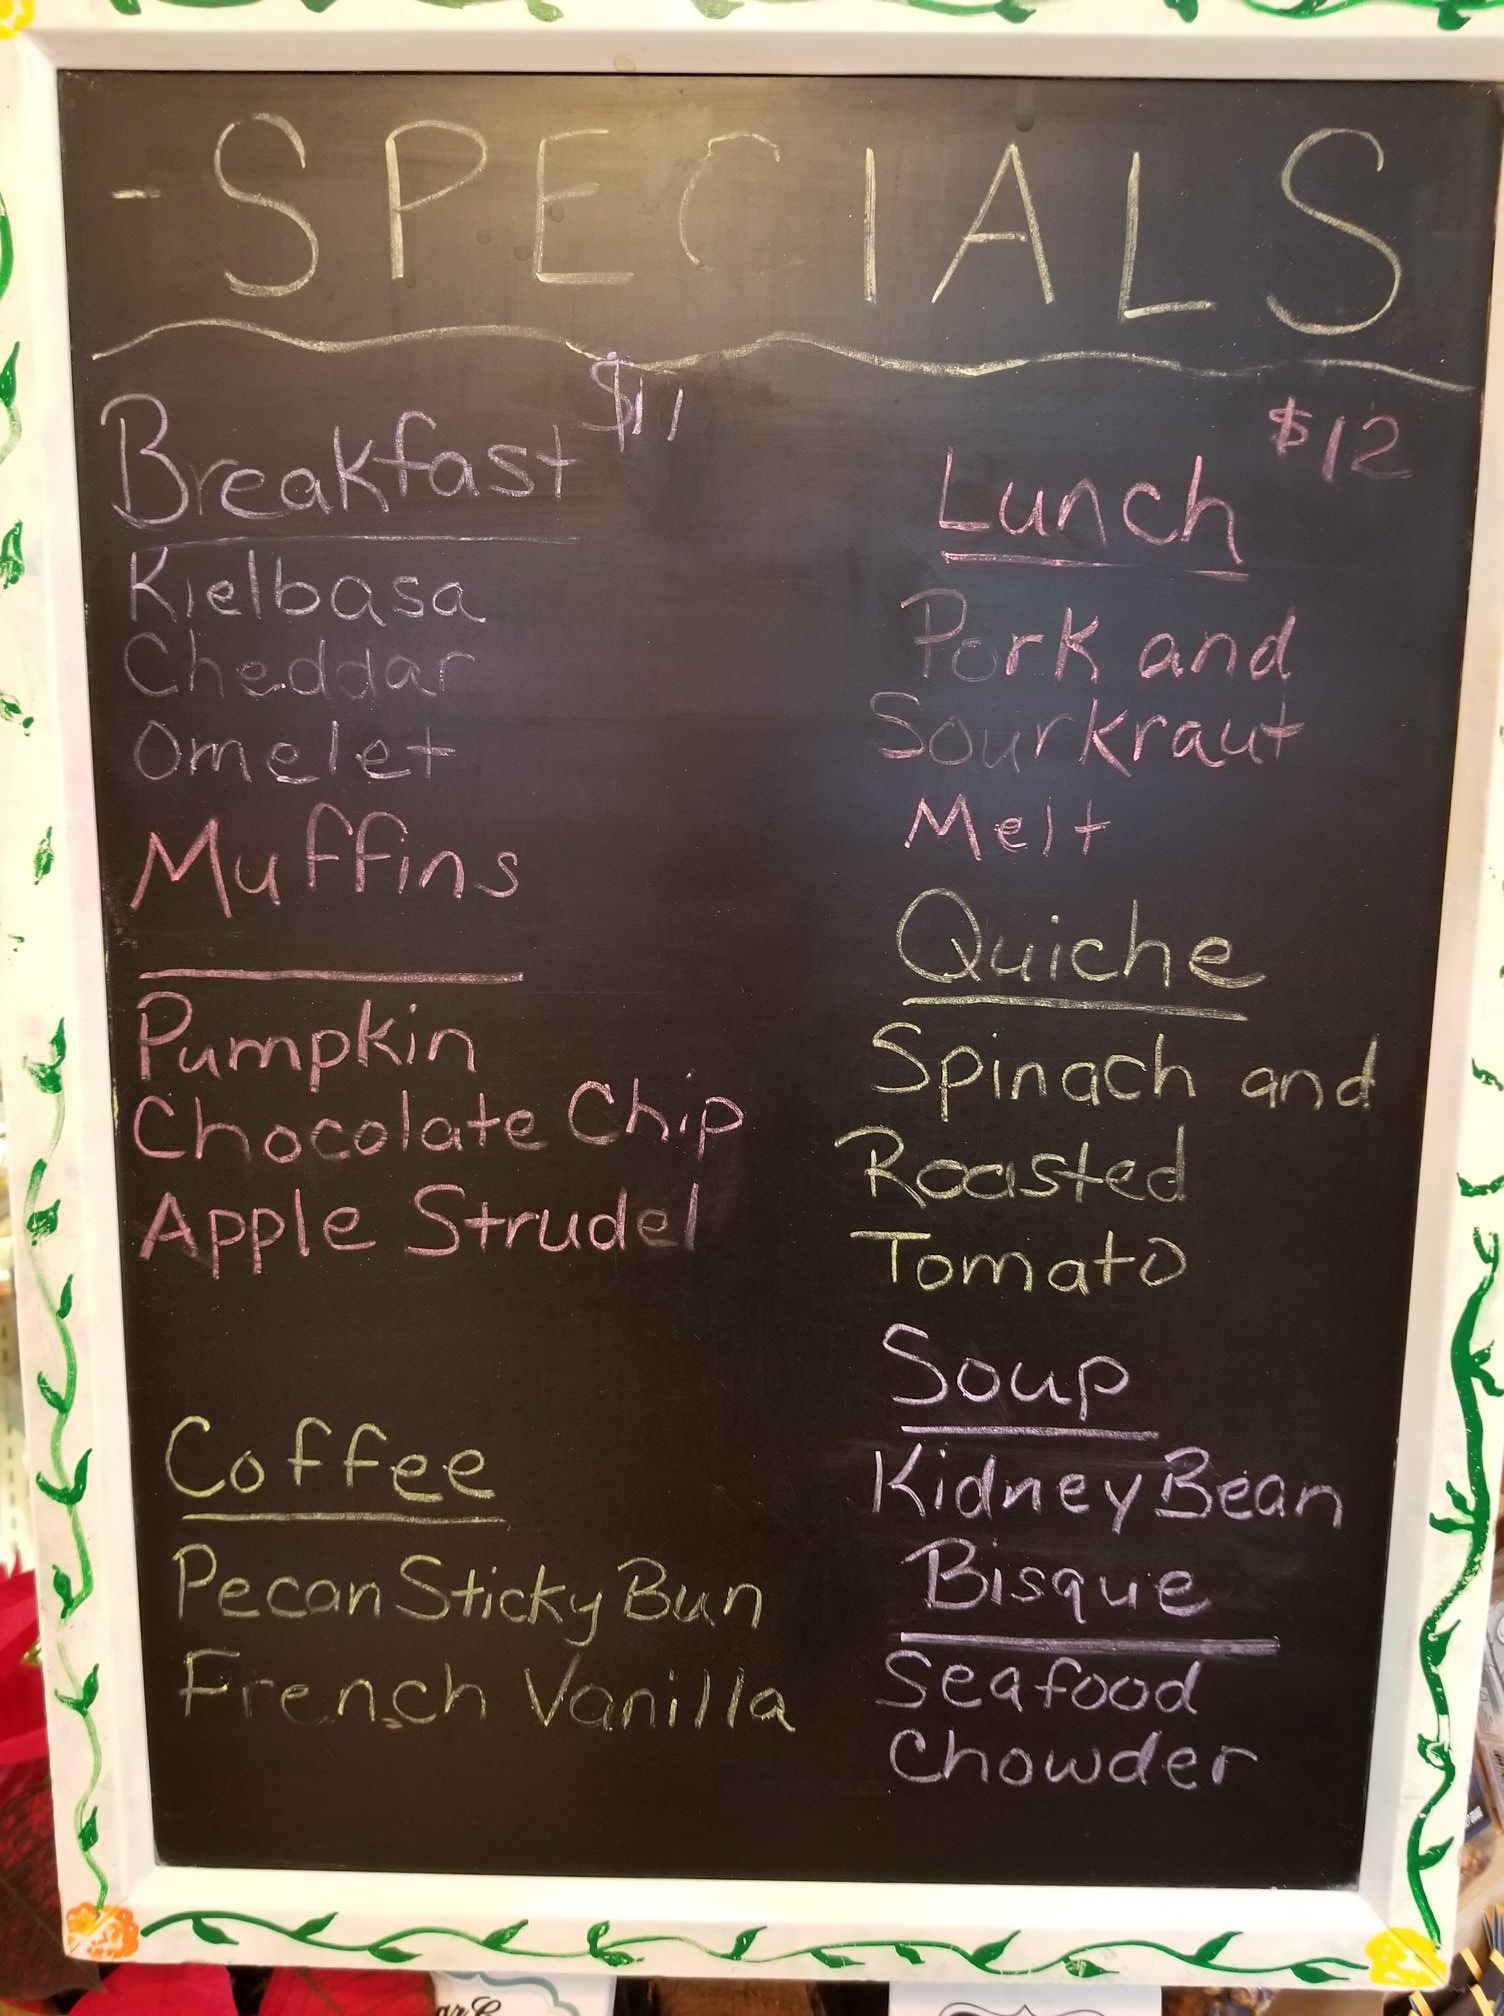 - SPECIALS
Breakfast $11
Kielbasa
Cheddar
Omelet
Muffins
Pumpkin
Chocolate Chip
Apple Strudel
Coffee
Pecan Sticky Bun
French Vanilla
Lunch $12
Pork and
Sourkraut
Melt
Quiche
Spinach and
Roasted
Tomato
Soup
Kidney Bean
Bisque
Seafood
Chowder